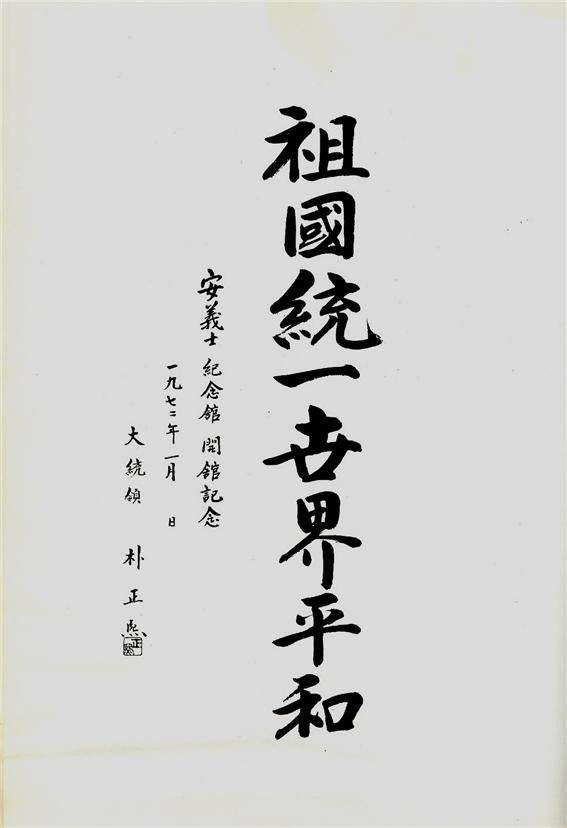 祖國統一世界平和
安義士 紀念館 開館記念
一九七二年 一月 日
大統領 朴正熙